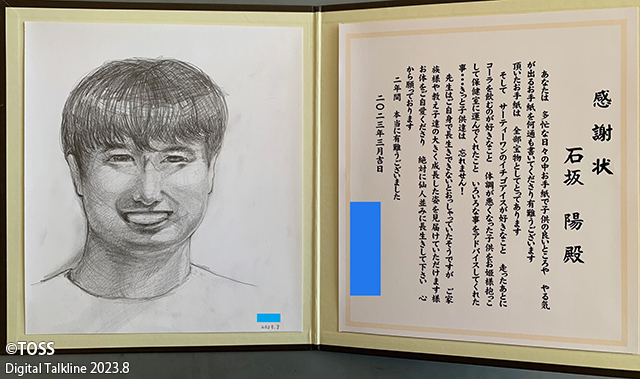 感謝状
石坂 陽 殿
あなたは 多忙な日々の中お手紙で子供の良いところや やる気
が出るお手紙を何通も書いてくださり有難うございます
頂いたお手紙は 全部宝物としてとってあります
そして サーティーワンのイチゴアイスが好きなこと 走ったあとに
コーラを飲むのが好きなこと 体調が悪くなった子供をお姫様抱っこ
して保健室に運んでくれたこと いろいろな事をアドバイスしてくれた
事・・・きっと子供達は 忘れません！
先生はご自身で長生きできないとおっしゃっていたそうですが ご家
族様や教え子達の大きく成長した姿を見届けていただけます様
お体をご自愛くださり 絶対に仙人並みに長生きして下さい 心
から願っております
二年間 本当に有難うございました
二〇二三年三月吉日
2023.3
©TOSS
Digital Talkline 2023.8